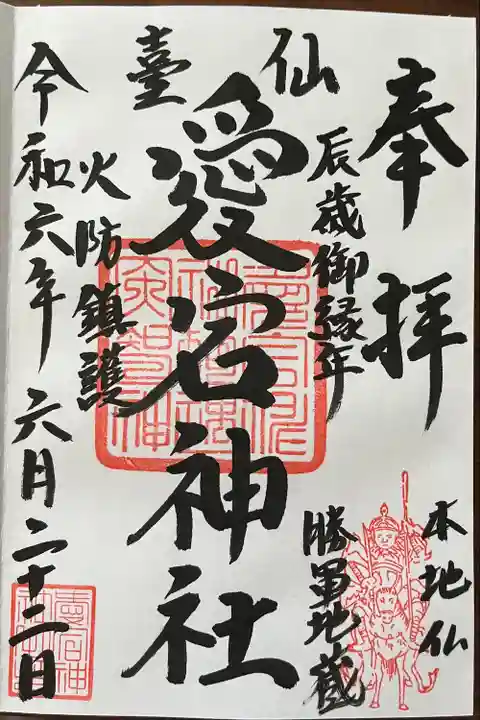 奉拝
本地仏
辰歳御縁年
勝軍地蔵
仙臺
愛宕神社
火防鎮護
令和六年六月二十二日